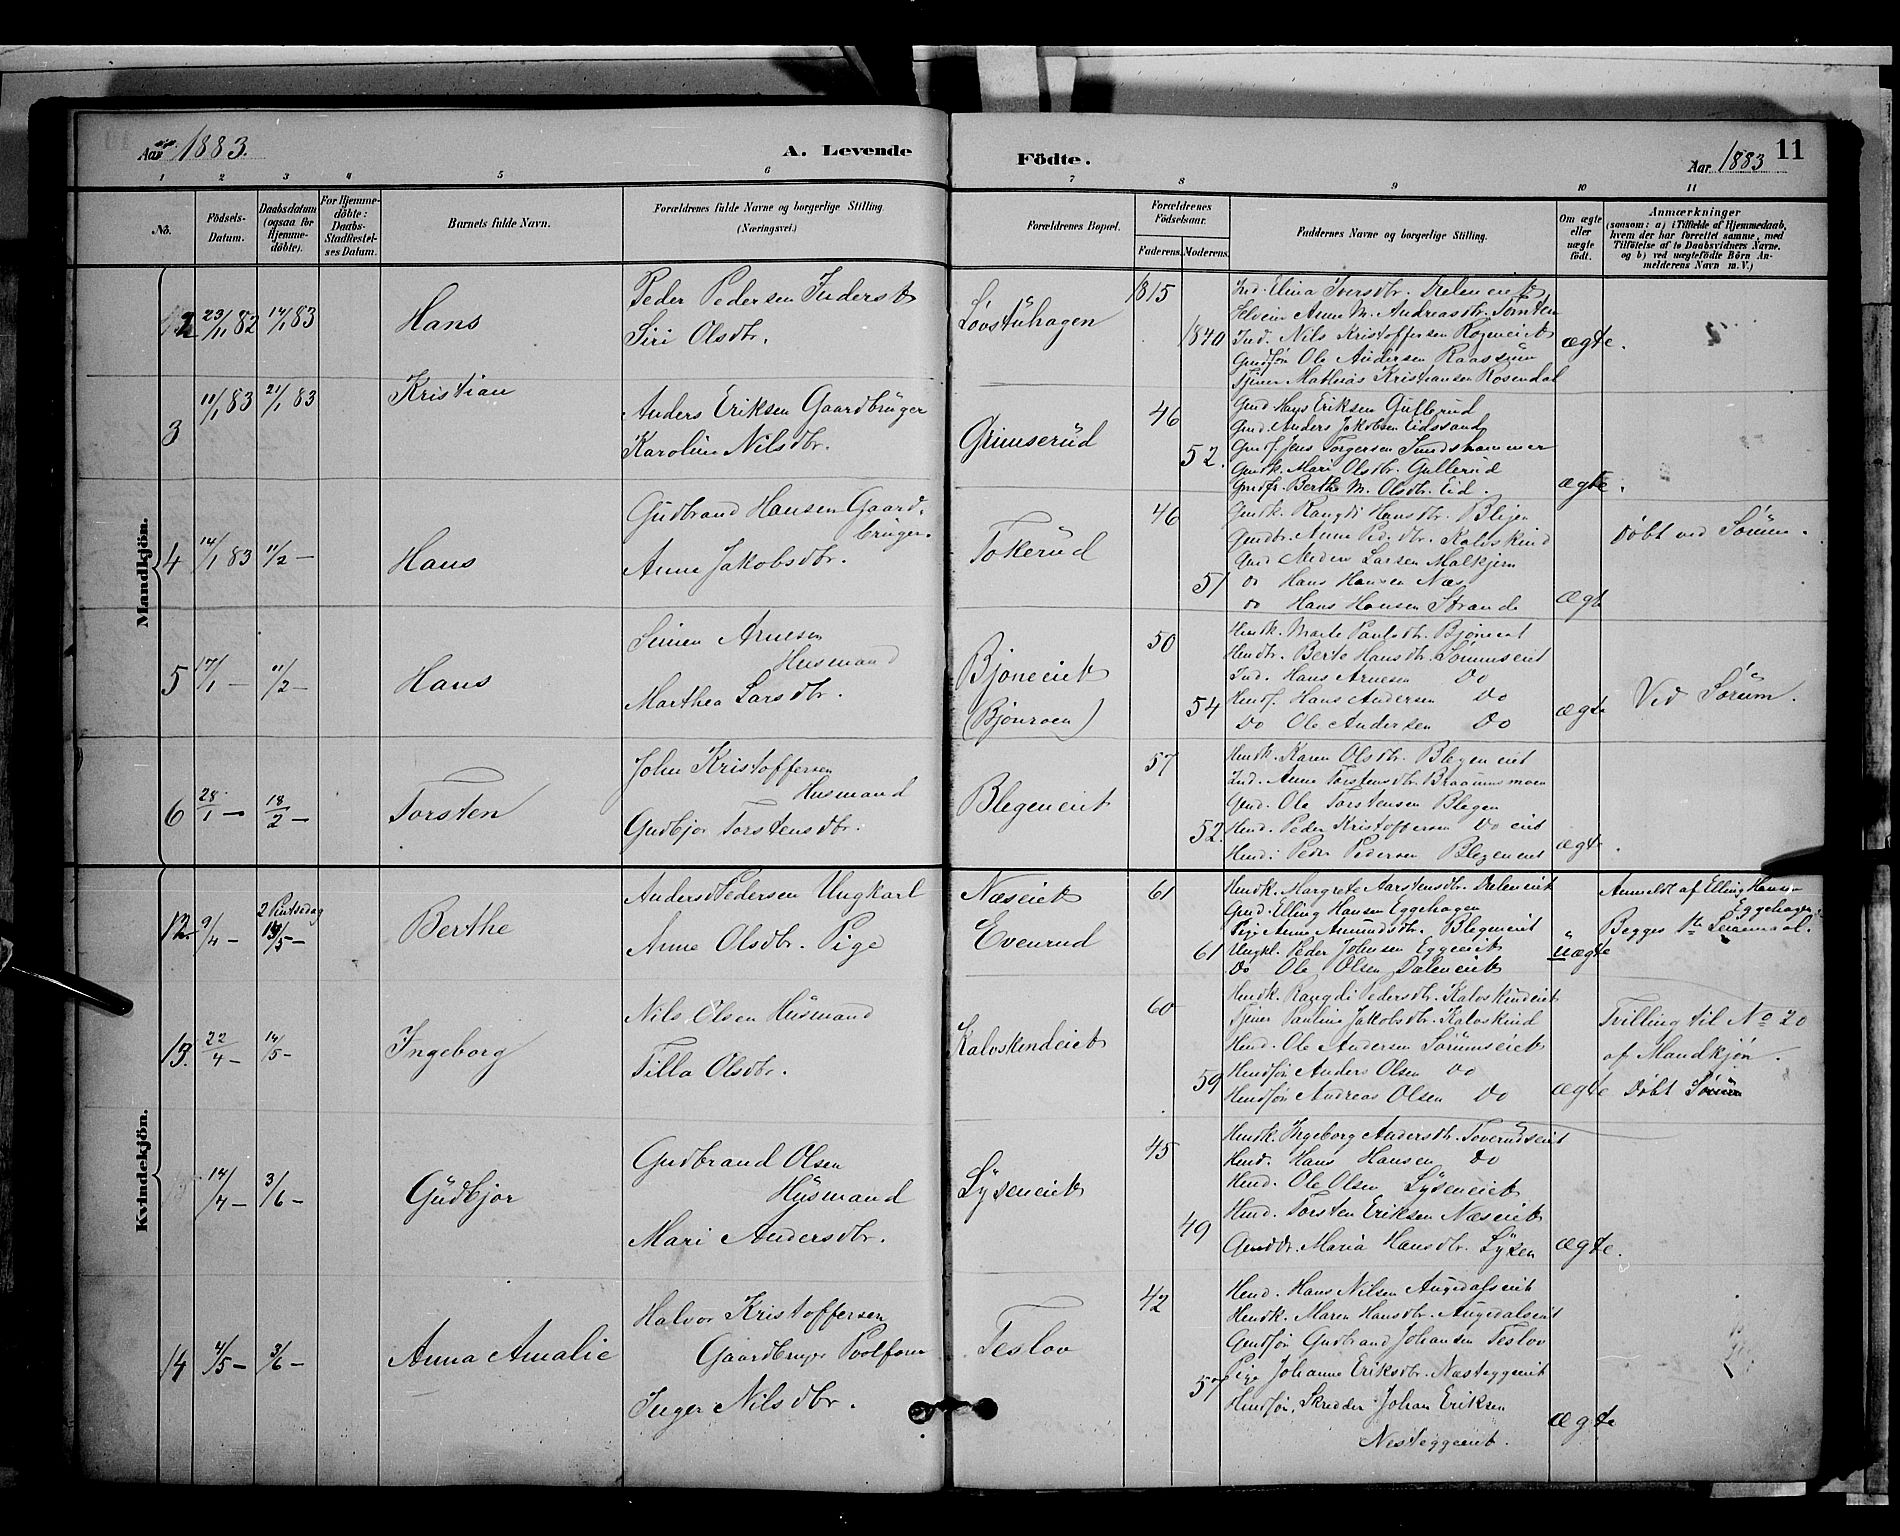 Aar 1883.
A. Levende
Födte.
Aar 1883
11
1 2 3 4 5 6 7 8 9 10 11
No.
Födsels-
Datum.
Daabsdatum
(ogsaa for
Hjemme-
döbte).
For Hjemme-
döbte:
Daabs-
Stadfæstel-
ses Datum.
Barnets fulde Navn.
Forældrenes fulde Navne og borgerlige Stilling.
(Næringsvei.)
Forældrenes Bopæl.
Forældrenes
Födselsaar.
Faderens. Moderens.
Faddernes Navne og borgerlige Stilling.
Om ægte
eller
uægte
født.
Anmærkninger
(saasom: a) i Tilfælde af Hjemmedaab,
hvem der har forrettet samme, med
Tilföielse af to Daabsvidners Navne.
og b) ved uægtefödte Börn An-
melderens Navn m. V.)
Mandkjön.
2 23/11 82 14/1 83
Hans
Peder Pedersen Inderst
Siri Olsdtr.
Lövstuhagen
1815
1840
Ind. Elina Iversdtr. Deleneiet
Anne M. Andreasdtr. Tomten
Ind. Nils Kristoffersen
Gmdsøn Ole Andersen Raassum
Tjener Mathias Kristiansen Rosendal
ægte.
3 11/1 83 21/1 83
Kristian
Anders Eriksen Gaardbruger
Karoline Nilsdtr.
Grimserud
46
52.
Gmd Hans Eriksen Gullerud
Gmd. Anders Jakobsen Eidssand
Gmdf. Jens Torgersen Sundshammer
Gmdk. Mari Olsdtr. Gullerud
Gmdfr. Berthe M. Olsdtr. Eid.
ægte.
4 14/1 83 11/2 —
Hans
Gudbrand Hansen Gaard-
bruger.
Anne Jakobsdtr.
Tokerud
46
51
Gmdk. Rangdi Hansdtr. Blegen
Gmdtr. Anne Ped.dtr. Kalvskind
Gmd Larsen Malkjern
Do Hans Hansen Næs
Do Hans Hansen Strande
ægte
Døbt ved Sörum.
5 17/1 — 11/2 —
Hans
Simen Arnesen
Husmand
Marthea Larsdtr.
Bjöneeiet
(Bjönroen)
50
54
Hmdk. Marte Paulsdtr. Bjöneeiet
Hmdtr. Berte Hansdtr. Sörumseiet
Ind. Hans Arnesen Do
Hmdf. Hans Andersen Do
Do Ole Andersen Do
ægte
Ved Sörum.
6 28/1 — 18/2 —
Torsten
John Kristoffersen
Husmand
Gudbjor Torstensdtr.
Blegeneiet
57
52.
Hmdk. Karen Olsdtr. Blegeneiet
Ind. Anne Torstensdtr. Braaumsmoen
Gmd. Ole Torstensen Blegen
Hmd. Peder Kristoffersen Do eiet
Hmd: Peder Pedersen Blegeneiet
ægte.
Kvindekjön.
12. 9/4 — 2 Pintsedag
14/5 —
Berthe
Anders Pedersen Ungkarl
Anne Olsdtr. Pige
Næseiet
Evenrud
61
61
Hmdk. Margrete Aarstensdtr. Deleneiet
Gmd. Elling Hansen Eggehagen
Pige Anne Amundsdtr. Blegeneiet
Ungkl. Peder Johnsen Eggeeiet
Do Ole Olsen Daleneiet
uægte
Anmeldt af Elling Hansen
Eggehagen
Begges 1te Leiermaal.
13. 22/4 — 14/5 —
Ingeborg
Nils Olsen Husmand
Tilla Olsdtr.
Kalvskindeiet
60
59
Hmdk. Rangdi Pedersdtr. Kalvskindeiet
Tjener Pauline Jakobsdtr. Kalvskind
Hmd. Ole Andersen Sörumseiet
Hmdsøn Anders Olsen Do
Hmdsøn Andreas Olsen Do
ægte
Trilling til No 20
af Mandkjön.
Døbt Sörum
14/4 — 3/6 —
Gudbjor
Gudbrand Olsen
Husmand
Mari Andersdtr.
Lyseneiet
45
49
Hmdk. Ingeborg Andersdtr. Toverudseiet
Hmd. Hans Hansen Do
Hmd. Ole Olsen Lyseneiet
Hmd. Torsten Eriksen Næseiet
Gmddr. Maria Hansdtr. Lysen
ægte.
14 4/5 — 3/6 —
Anna Amalie
Halvor Kristoffersen
Gaardbruger
Inger Nilsdtr.
Teslov
42
57
Hmd. Hans Nilsen Augedalseiet
Hmdk. Maren Hansdtr. Augedalseiet
Gmdsøn Gudbrand Johansen Teslov
Pige Johanne Eriksdtr. Næseggeeiet
Hmdsøn, Skredder Johan Eriksen
Neseggeeiet.
ægte